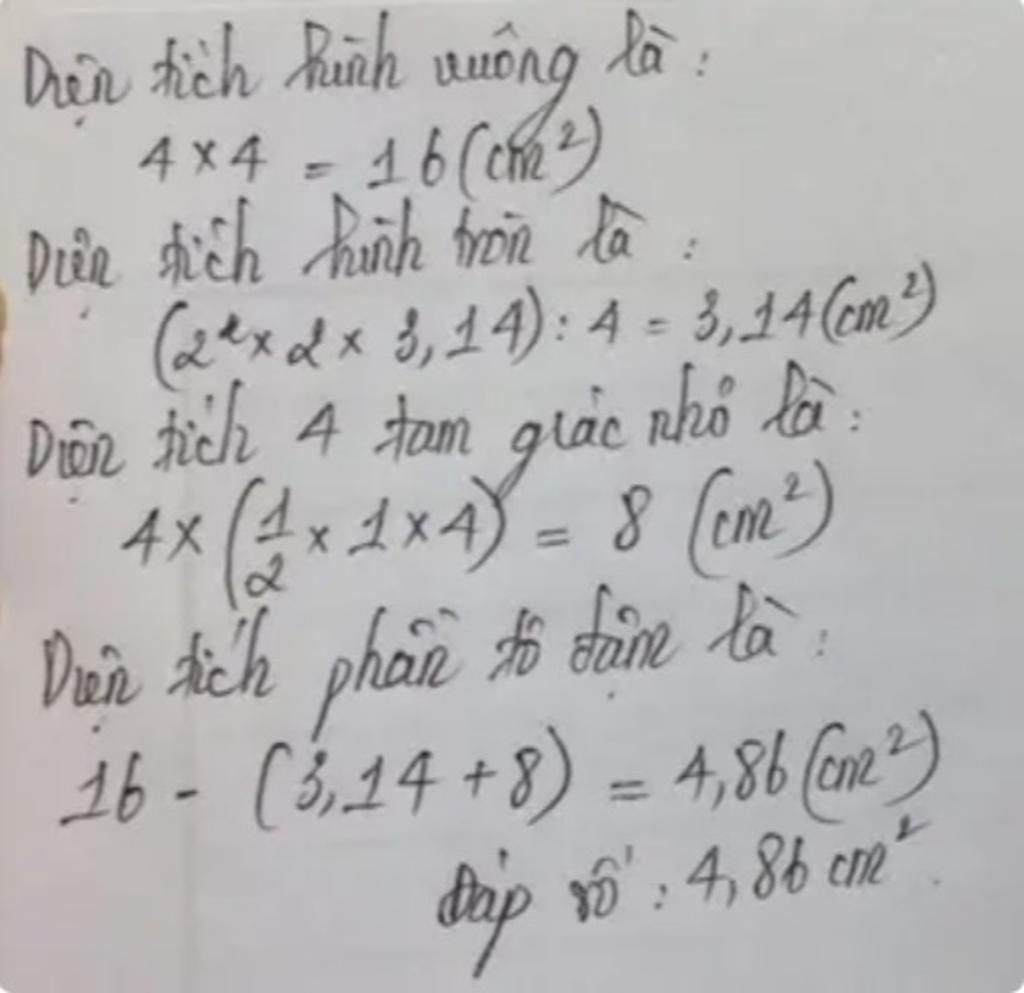 Diện tích hình vuông là:
4 × 4 = 16 (cm²)
Diện tích hình tròn là:
(2² × 2 × 3,14) : 4 = 3,14 (cm²)
Diện tích 4 tam giác nhỏ là:
4 × (1/2 × 1 × 4) = 8 (cm²)
Diện tích phần tô đậm là:
16 - (3,14 + 8) = 4,86 (cm²)
Đáp số: 4,86 cm²